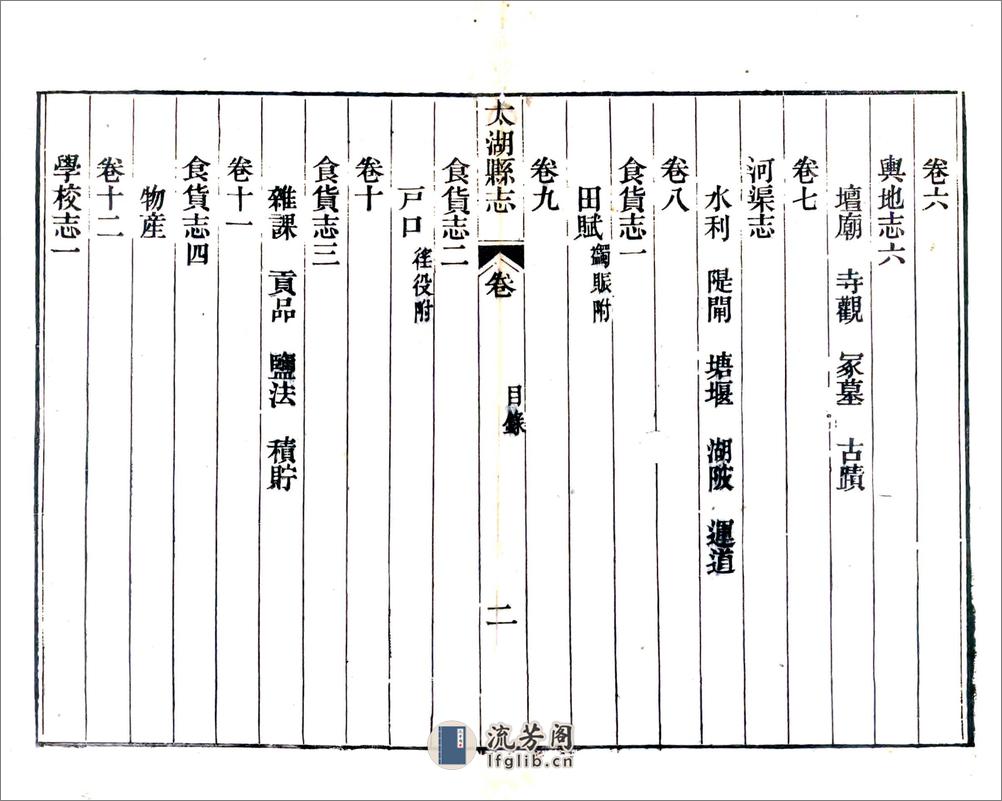 卷六
輿地志六
壇廟 寺觀 冢墓 古蹟
卷七
河渠志
水利 隄閘 塘堰 湖陂 運道
卷八
食貨志一
田賦 蠲賑附
卷九
太湖縣志 卷 目錄 二
食貨志二
戸口 徭役附
卷十
食貨志三
雜課 貢品 鹽法 積貯
卷十一
食貨志四
物産
卷十二
學校志一
流芳阁
lfglib.cn